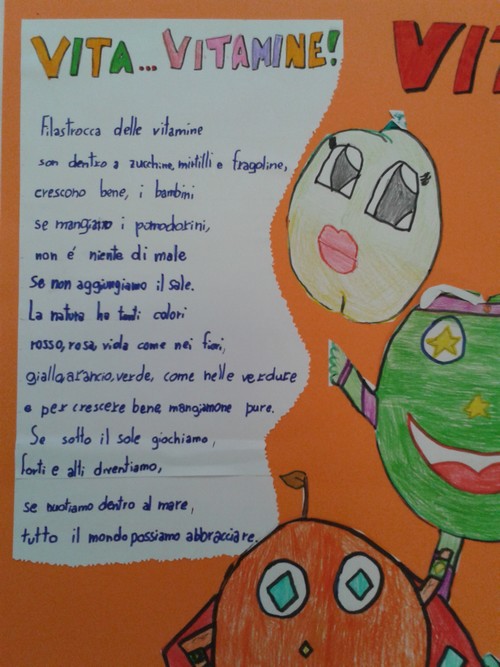 VITA... VITAMINE!
VIT
Filastrocca delle vitamine
son dentro a zucchine, mirtilli e fragoline,
crescono bene, i bambini
se mangiano i pomodorini,
non é niente di male
se non aggiungiamo il sale.
La natura ha tanti colori
rosso, rosa, viola come nei fiori,
giallo, arancio, verde, come nelle verdure
e per crescere bene, mangiamone pure.
Se sotto il sole giochiamo,
forti e alti diventiamo,
se nuotiamo dentro al mare,
tutto il mondo possiamo abbracciare.